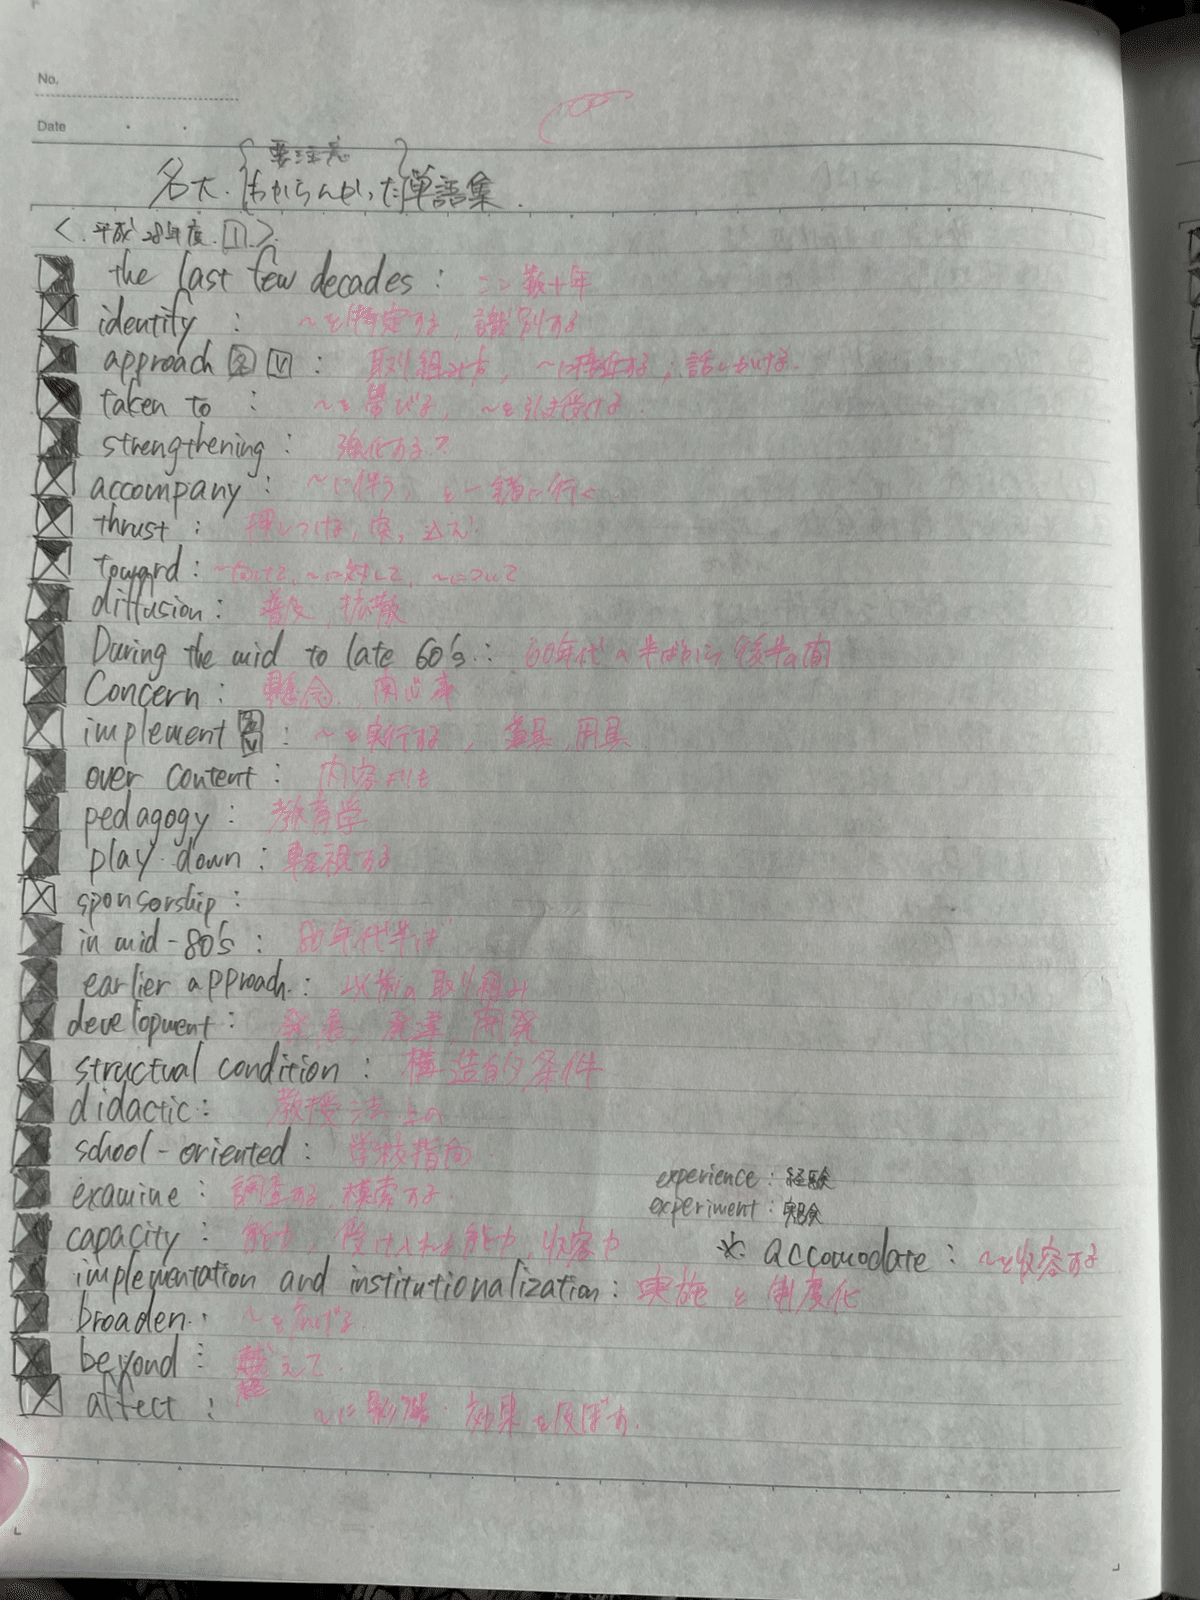 No.
Date
要注意
名大・わからんかった単語集.
<平成28年度. 1>
the last few decades : ここ数十年
identify : ～を特定する, 識別する
approach 名 V : 取り組み方, ～に接近する, 話しかける.
taken to : ～を学びる, ～を引き受ける.
strengthening : 強化する?
accompany : ～に伴う, と一緒に行く
thrust : 押しつける, 突っ込む
toward : ～向けて, ～に対して, ～について
diffusion : 普及, 拡散
During the mid to late 60's : 60年代の半ばから後半の間
Concern : 懸念, 関心事
implement 名 V : ～を実行する, 道具, 用具
over content : 内容よりも
pedagogy : 教育学
play down : 軽視する
sponsorship :
in mid-80's : 80年代半ば
earlier approach. : 以前の取り組み
development : 発展, 発達, 開発
structual condition : 構造的条件
didactic : 教授法上の
school-oriented : 学校指向
experience : 経験
examine : 調査する, 模索する
experiment : 実験
capacity : 能力, 受け入れる能力, 収容力
※ accomodate : ～を収容する
implementation and institutionalization : 実施と制度化
broaden : ～を広げる
beyond : 越えて.
affect : ～に影響・効果を及ぼす.